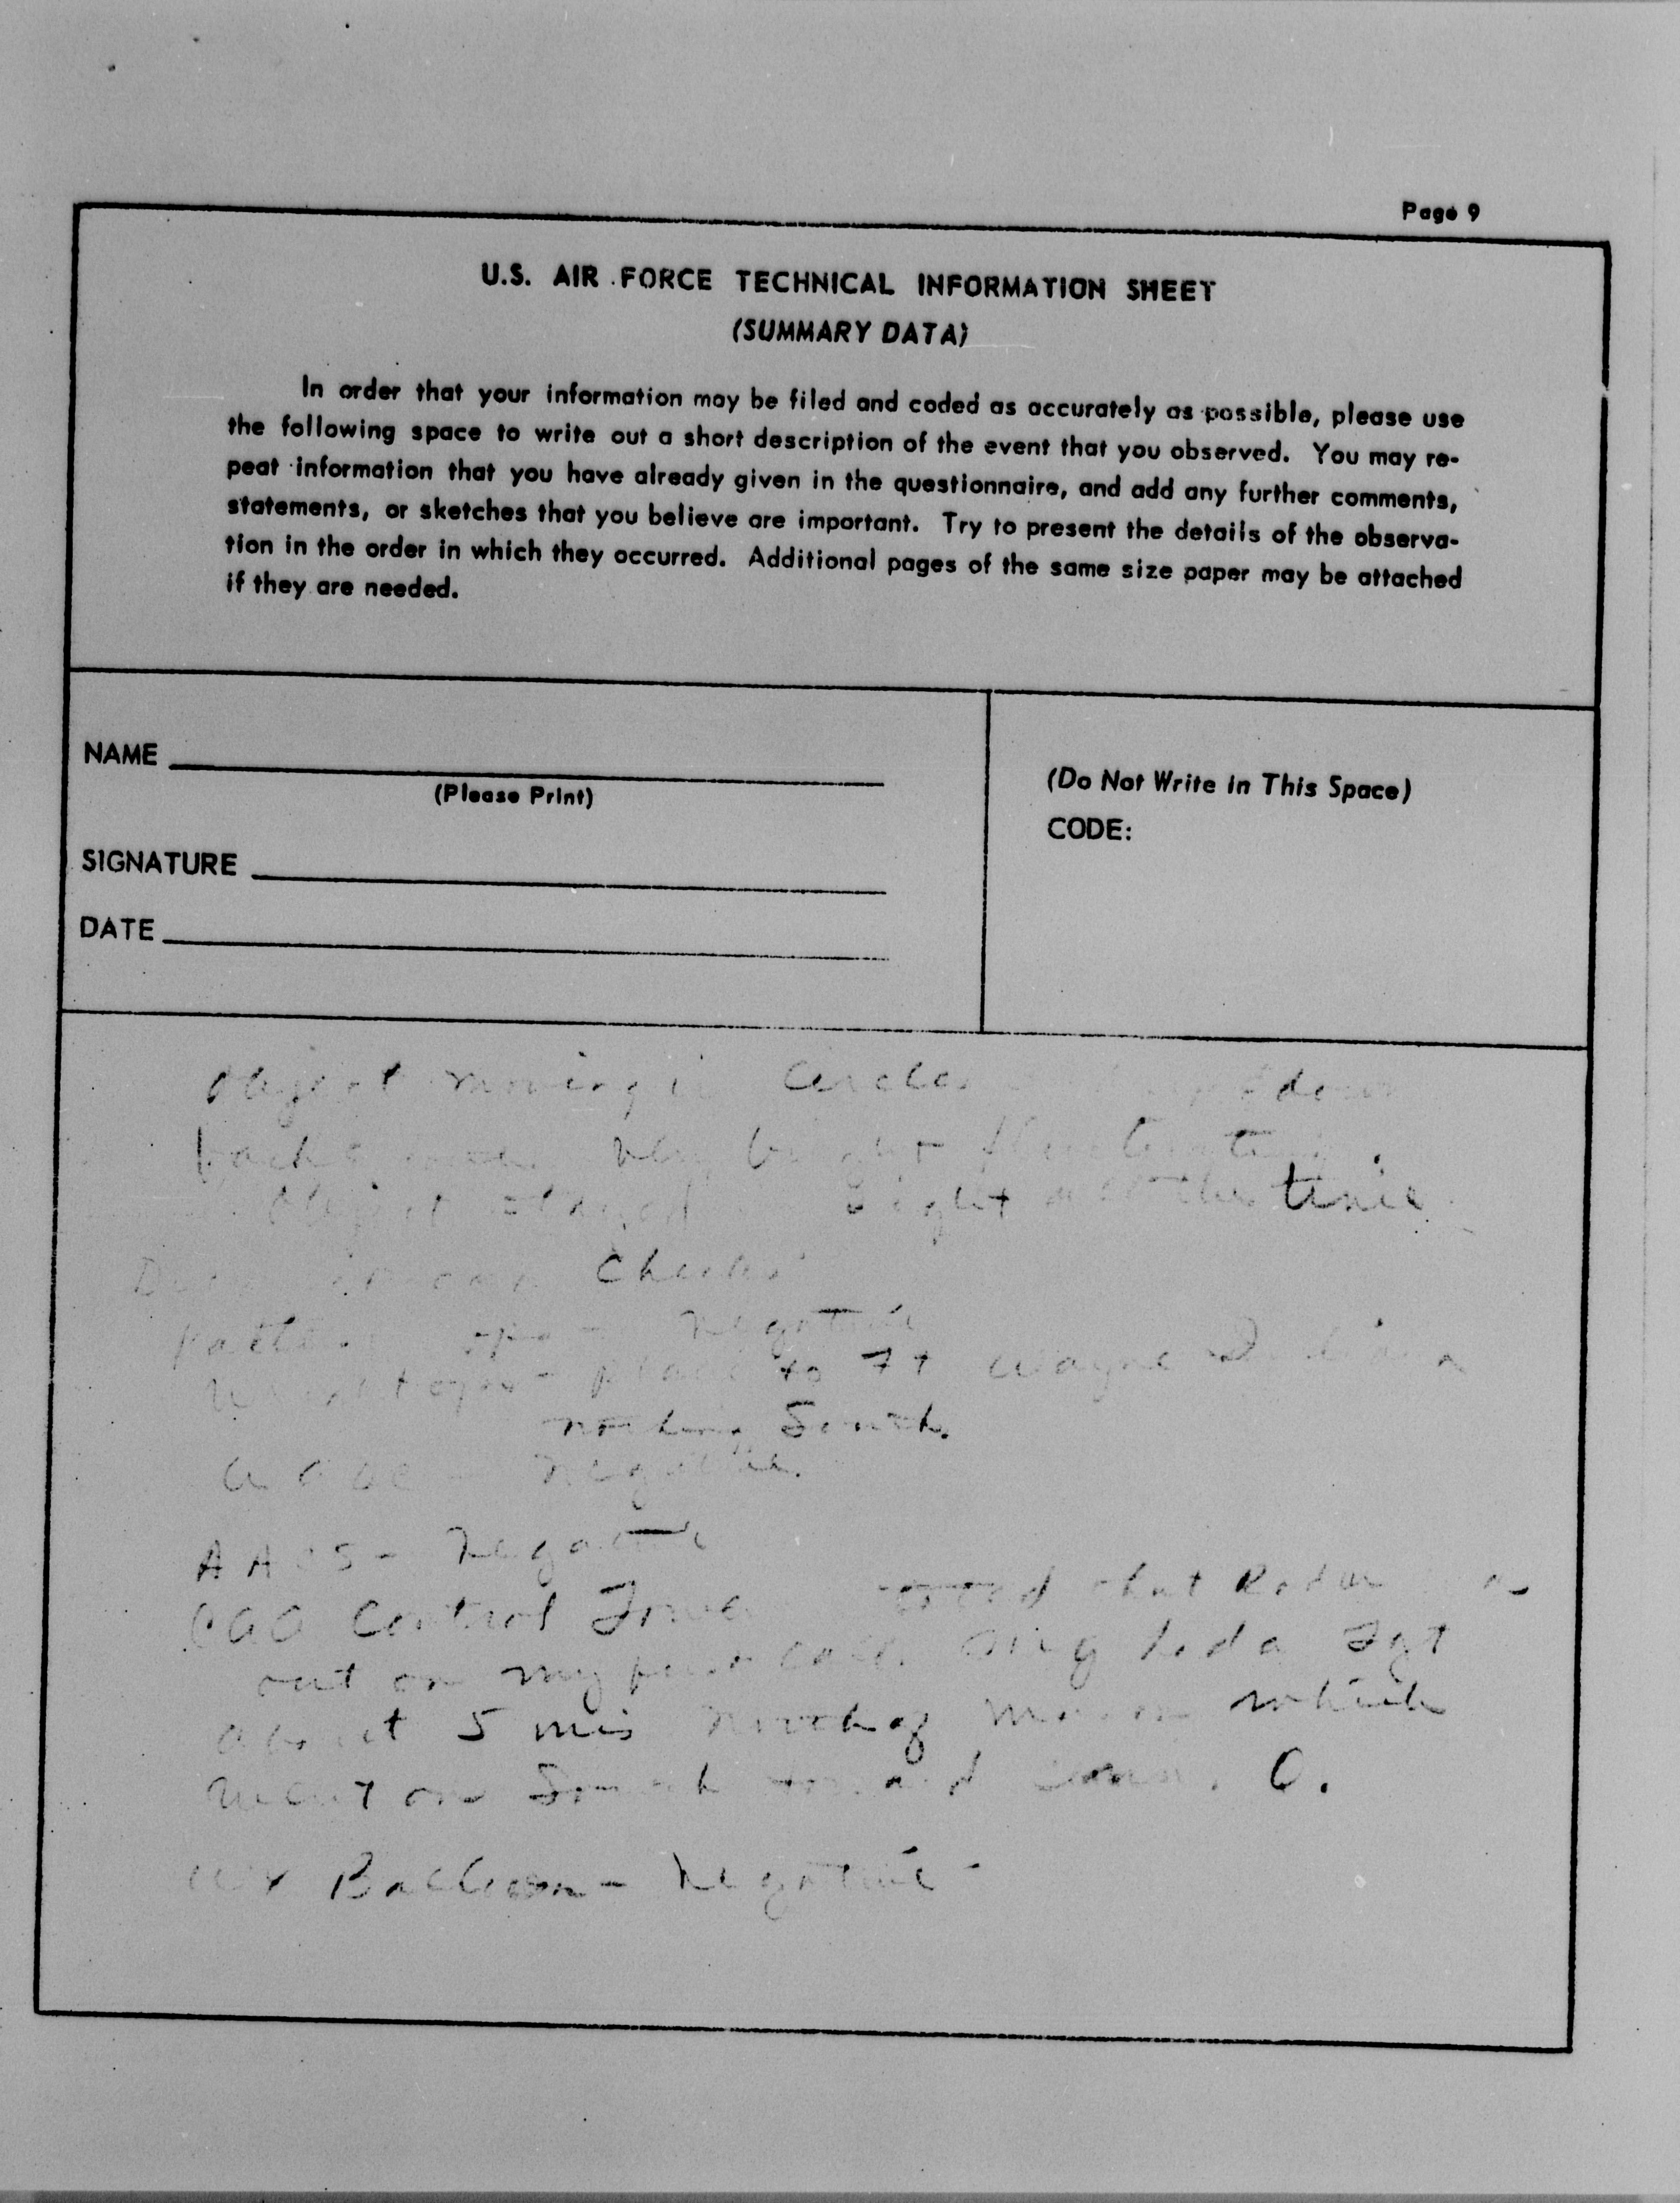 Page 9
U.S. AIR FORCE TECHNICAL INFORMATION SHEET
(SUMMARY DATA)
In order that your information may be filed and coded as accurately as possible, please use
the following space to write out a short description of the event that you observed. You may re-
peat information that you have already given in the questionnaire, and add any further comments,
statements, or sketches that you believe are important. Try to present the details of the observa-
tion in the order in which they occurred. Additional pages of the same size paper may be attached
if they are needed.
NAME
(Please Print)
SIGNATURE
DATE
(Do Not Write in This Space)
CODE:
Object moving in circles down
very bright fluctuating.
Object stayed in sight all the time
Checks
negative
to Ft Wayne Indiana
nothing South.
negative.
AACS - Negative
CAA Control Tower that Radar
out on my call. had a Tgt
about 5 mis North of which
went on South toward O.
Wx Balloon - Negative